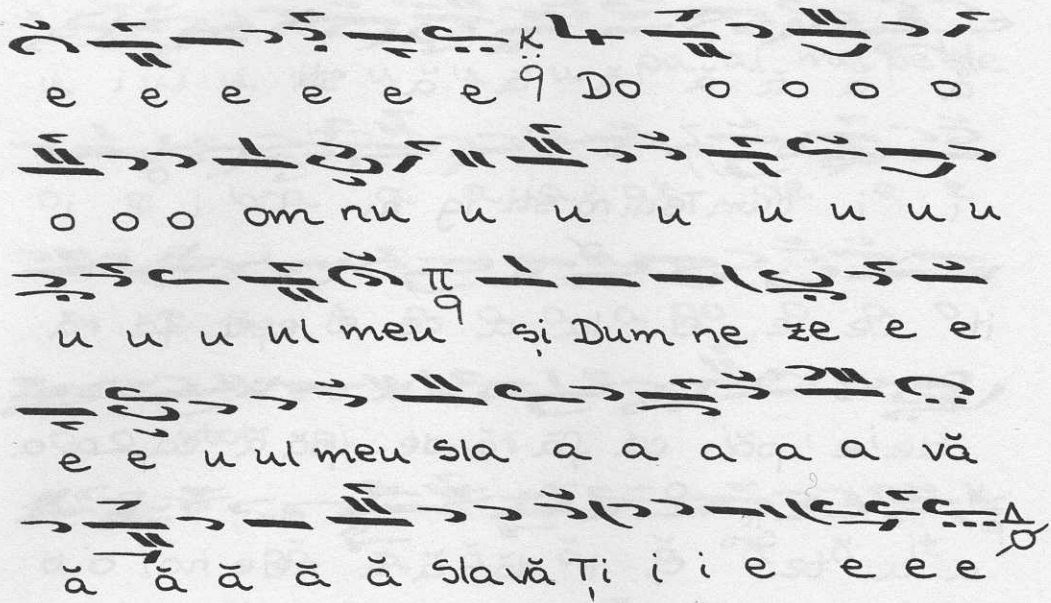 e e e e e e Do o o o o
o o o om nu u u u u u u u
u u u ul meu și Dum ne ze e e
e e u ul meu Sla a a a a a vă
ă ă ă ă ă Slavă Ți i i e e e e